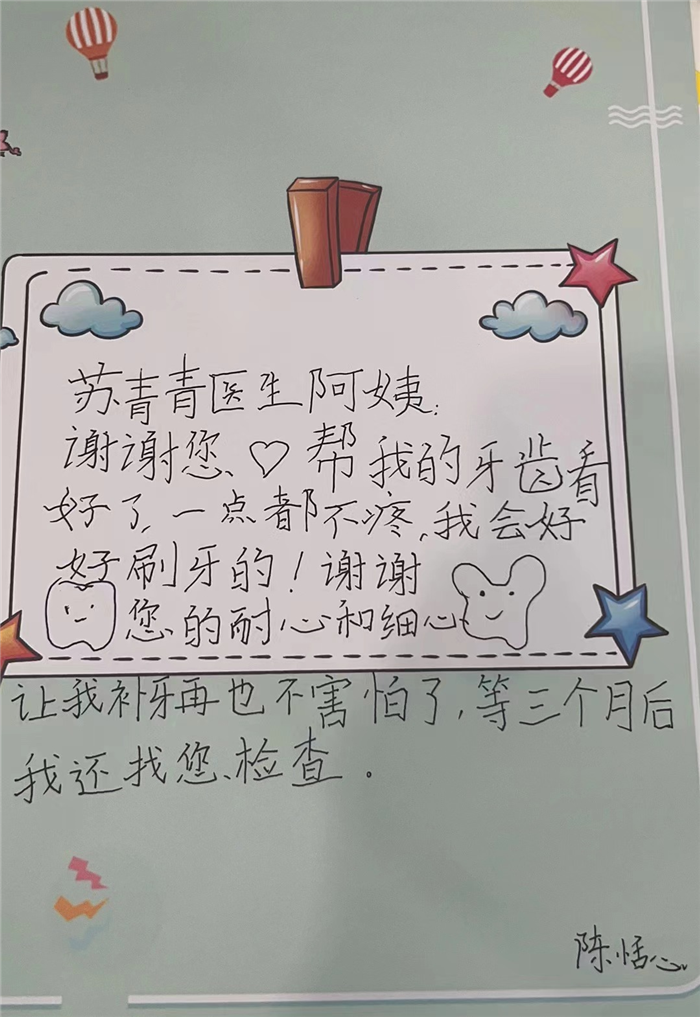 苏青青医生阿姨:
谢谢您♡帮我的牙齿看
好了,一点都不疼,我会好
好刷牙的!谢谢
您的耐心和细心
让我补牙再也不害怕了,等三个月后
我还找您检查.
陈恬心